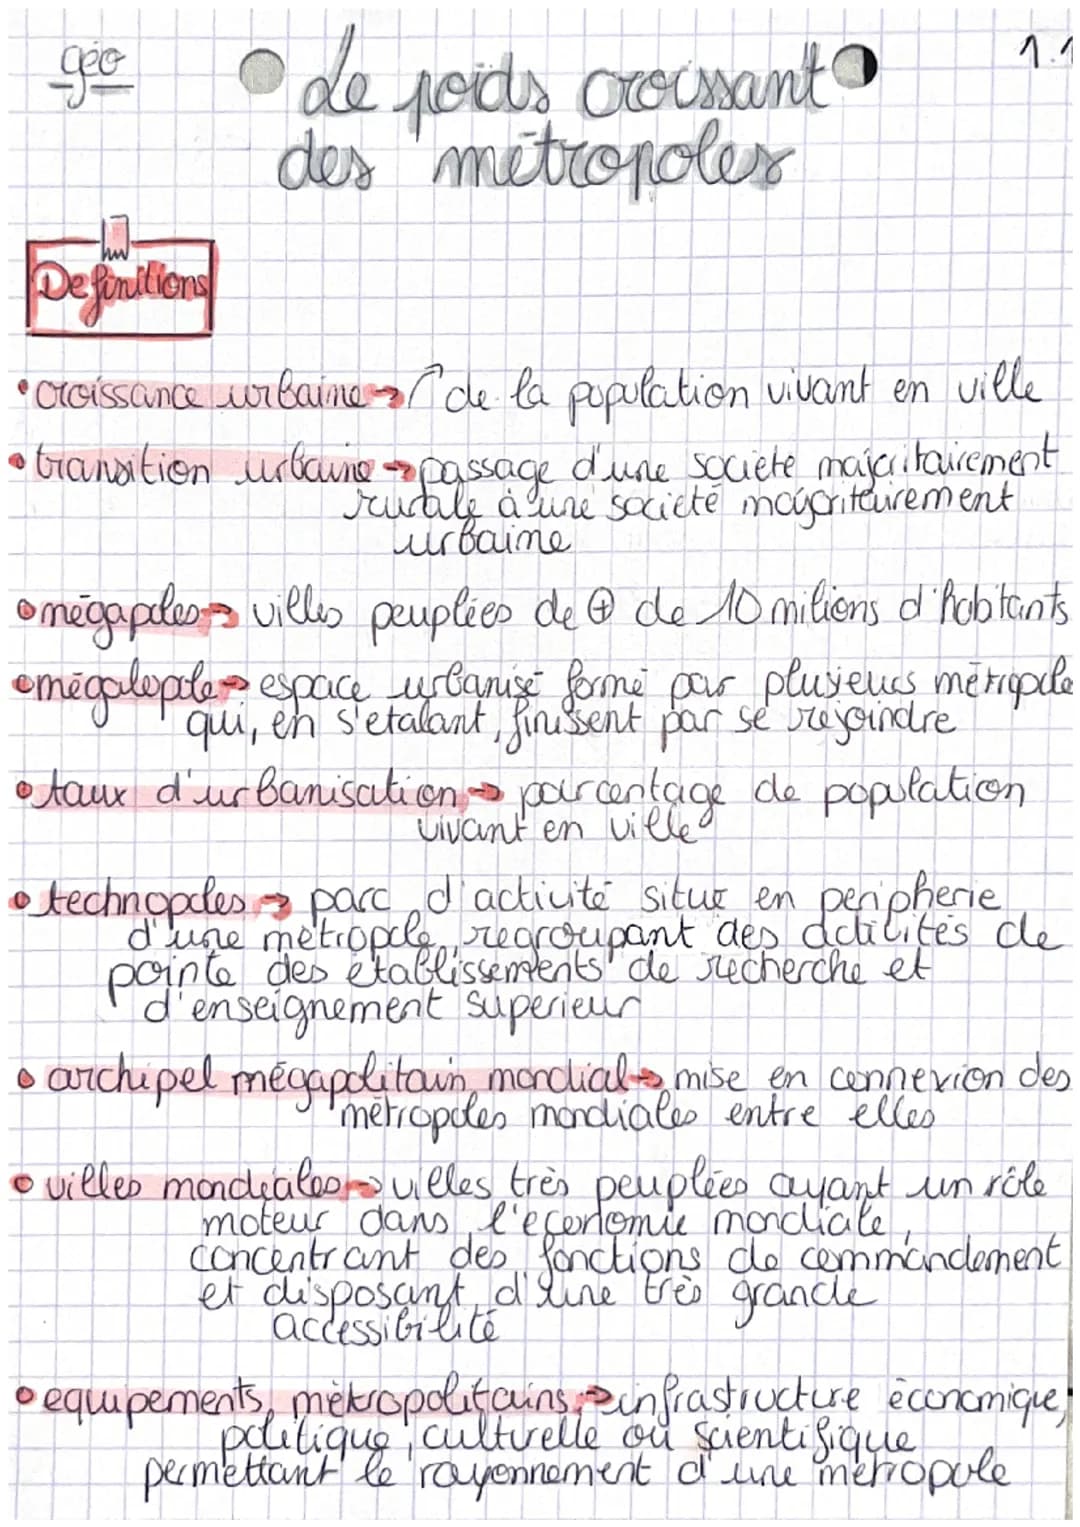 géo
1.1
Le poids croissant
des métropoles
Definitions
• croissance urbaine → ↗ de la population vivant en ville
• transition urbaine → passage d'une société majoritairement
rurale à une société majoritairement
urbaine
• mégapoles → villes peuplées de ⊕ de 10 milions d'habitants
• mégalopole → espace urbanisé formé par plusieurs métropole
qui, en s'etalant, finissent par se rejoindre
• taux d'urbanisation → pourcentage de population
vivant en ville
• technopoles → parc d'activité situé en peripherie
d'une métropole, regroupant des activités de
pointe des établissements de recherche et
d'enseignement superieur
• archipel mégapolitain mondial → mise en connexion des
métropoles mondiales entre elles
• villes mondiales → villes très peuplées ayant un rôle
moteur dans l'economie mondiale,
concentrant des fonctions de commandement
et disposant d'une très grande
accessibilité
• equipements métropolitains → infrastructure économique,
politique, culturelle ou scientifique
permettant le rayonnement d'une métropole